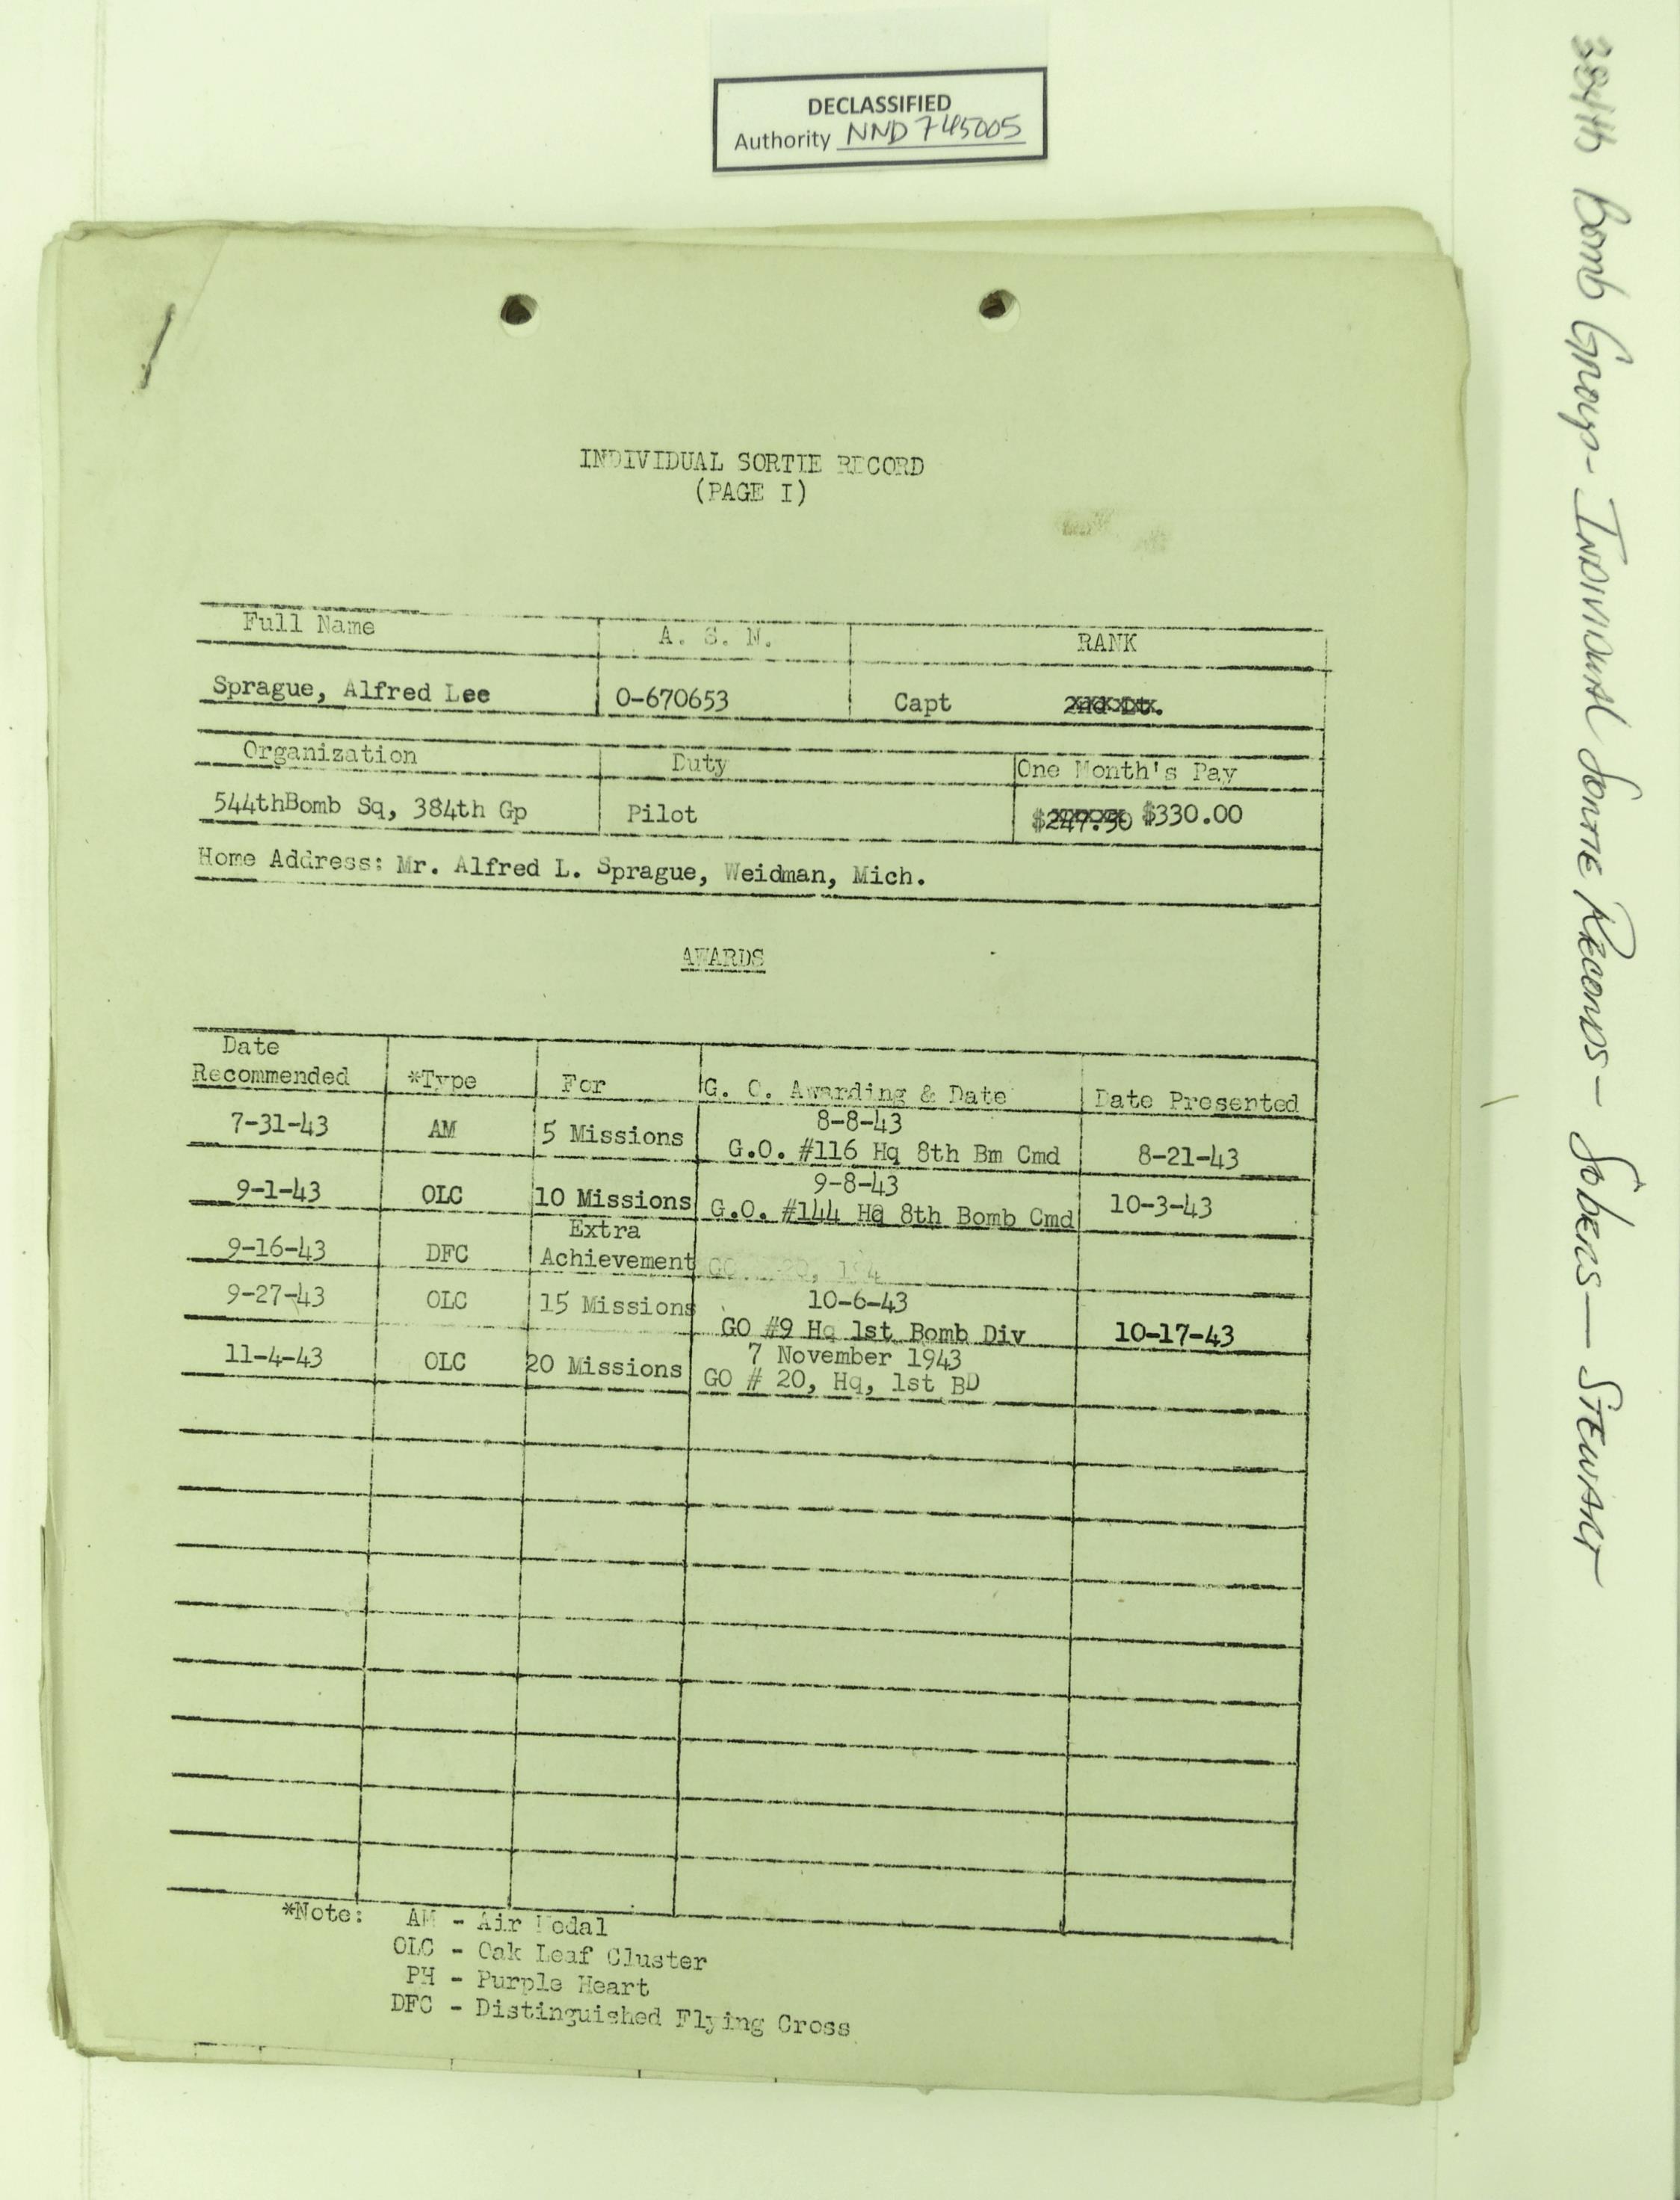 DECLASSIFIED
Authority NND 745005
384th Bomb Group - Individual Sortie Records - Sobers - Stewart
INDIVIDUAL SORTIE RECORD
(PAGE I)
Full Name A. S. N. RANK
Sprague, Alfred Lee 0-670653 Capt 2nd Lt.
Organization Duty One Month's Pay
544thBomb Sq, 384th Gp Pilot $247.50 $330.00
Home Address: Mr. Alfred L. Sprague, Weidman, Mich.
AWARDS
Date
Recommended *Type For G. O. Awarding & Date Date Presented
7-31-43 AM 5 Missions 8-8-43
G.O. #116 Hq 8th Bm Cmd 8-21-43
9-1-43 OLC 10 Missions 9-8-43
G.O. #144 Hq 8th Bomb Cmd 10-3-43
Extra
9-16-43 DFC Achievement
9-27-43 OLC 15 Missions 10-6-43
GO #9 Hq 1st Bomb Div 10-17-43
11-4-43 OLC 20 Missions 7 November 1943
GO # 20, Hq, 1st BD
*Note: AM - Air Medal
OLC - Oak Leaf Cluster
PH - Purple Heart
DFC - Distinguished Flying Cross